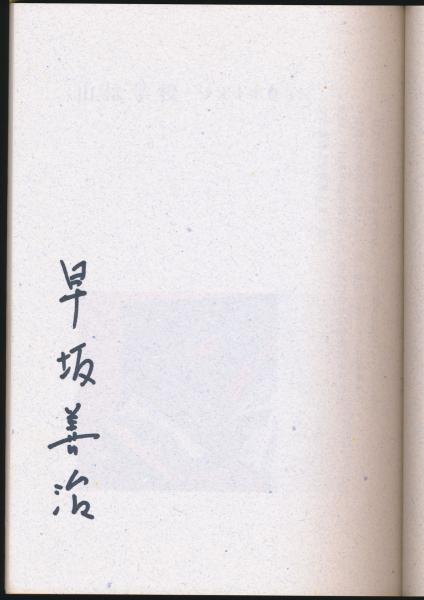 早坂善治